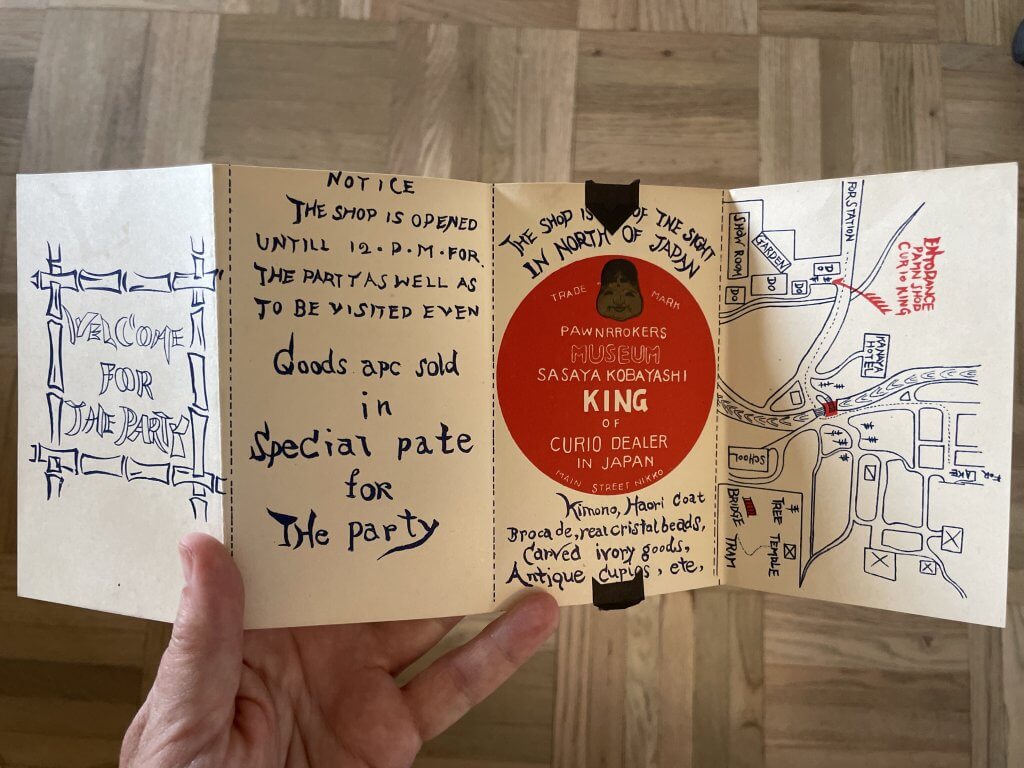 WELCOME
FOR
THE PARTY
NOTICE
THE SHOP IS OPENED
UNTILL 12.P.M.FOR.
THE PARTY AS WELL AS
TO BE VISITED EVEN
Goods apc sold
in
Special pate
for
THe party
THE SHOP IS OF THE SIGHT
IN NORTH OF JAPAN
TRADE MARK
PAWNRROKERS
MUSEUM
SASAYA KOBAYASHI
KING
OF
CURIO DEALER
IN JAPAN
MAIN STREET NIKKO
Kimono, Haori Coat
Brocade, real cristal beads,
Carved ivory goods,
Antique Cupios, ete,
FOR STATION
SHOW ROOM
GARDEN
DO
DO
DO
DO
ENTORANCE
PAWN SHOP
CURIO KING
KANAYA
HOTEL
SCHOOL
FOR LAKE
TREE
TEMPLE
BRIDGE
TRAM